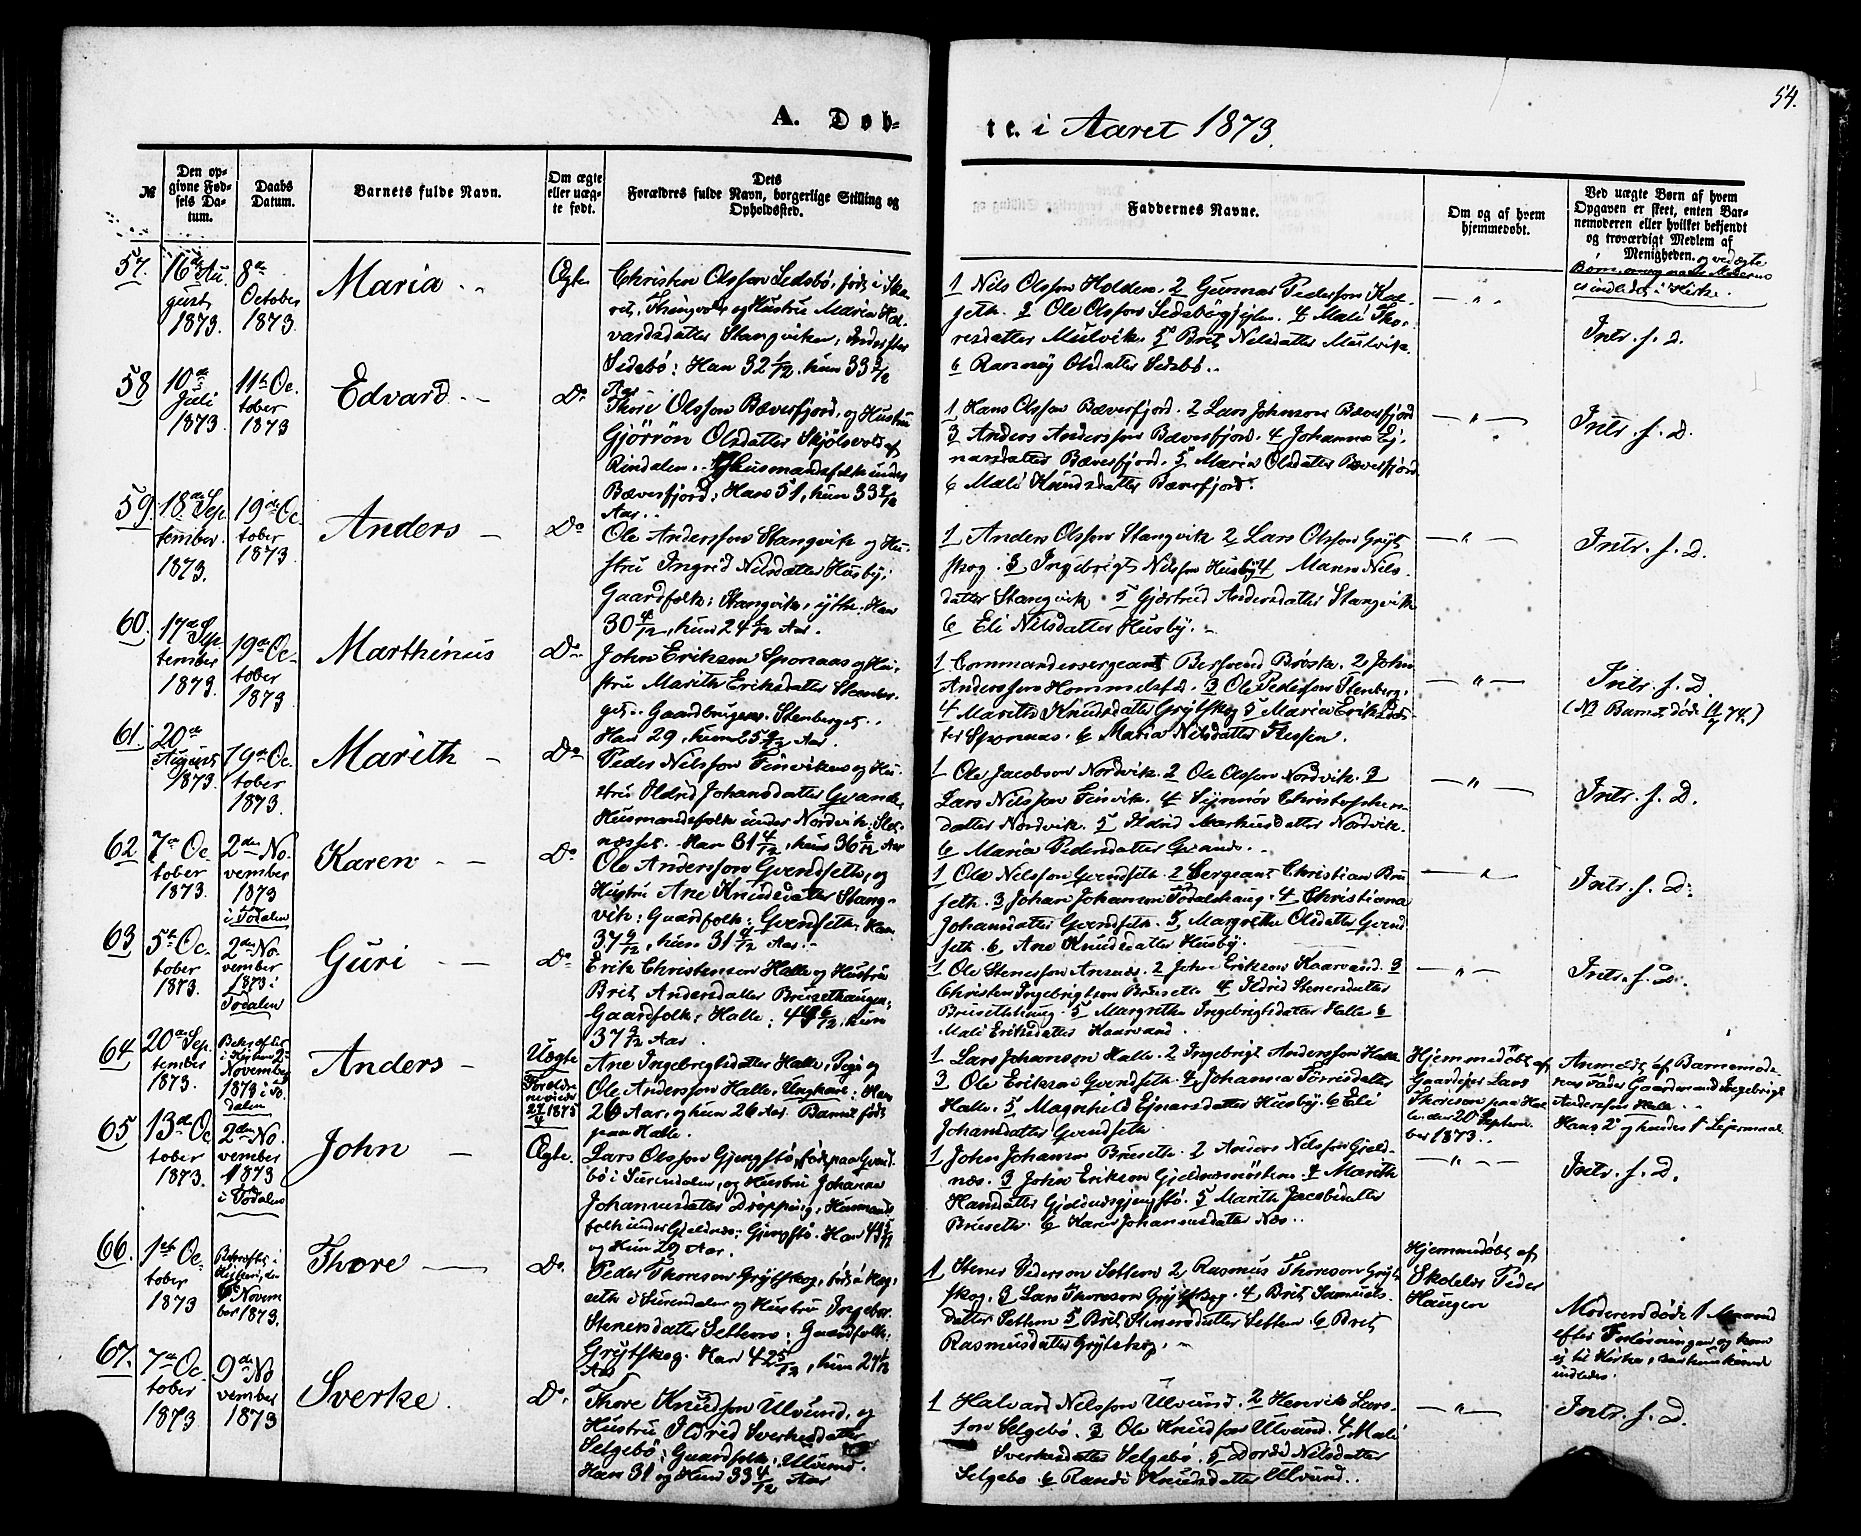 54.
A. Døb-
te. i Aaret 1873.
№
Den op-
givne Fød-
sels Da-
tum.
Daabs
Datum.
Barnets fulde Navn.
Om ægte
eller uæg-
te født.
Dets
Forældres fulde Navn, borgerlige Stilling og
Opholdssted.
Faddernes Navne.
Om og af hvem
hjemmedøbt.
Ved uægte Børn af hvem
Opgaven er skeet, enten Bar-
nemoderen eller hvilket bekjendt
og troværdigt Medlem af
Menigheden. og ved ægte
Børn, om og naar Moderen
er indledet i Kirke.
57.
16de Au
gust
1873.
8de
October
1873.
Maria
Ægte
Christen Olsson Sedsbø, født i
Thingvold, og Hustru Maria Hal-
vardsdatter Stangviken, Inderster
Sedsbø: Han 32 1/12, hun 33
Aar
1 Nils Olsson Holden. 2 Gunnar Pederson Kal-
seth. 3 Ole Olsson Sedsbøgjejlen. 4 Mali Tho-
resdatter Mulvik. 5 Brit Nilsdatter Mulvik.
6 Rannøy Olsdatter Sedsbø.
Intr. s. D.
58
10de
Juli
1873.
11te Oc
tober
1873
Edvard
Do
Thore Olsson Bæverfjord, og Hustru
Gjørrøn Olsdatter Skjølsvold af
Rindalen. Husmandsfolk under
Bæverfjord; Han 51, hun 33
Aar.
1 Hans Olsson Bæverfjord. 2 Lars Johnsons Bæverfjord
3 Anders Andersson Bæverfjord. 4 Johanna Ej-
narsdatter Bæverfjord. 5 Maria Olsdatter Bæverfjord
6 Mali Knudsdatter Bæverfjord.
Intr. s. D.
59.
18de Sep
tember
1873.
19de Oc
tober
1873.
Anders
Do
Ole Andersson Stangvik og Hu-
stru Ingrid Nilsdatter Husby;
Gaardfolk: Stangvik, ytte. Han
30 4/12, hun 24 Aar.
1 Anders Olsson Stangvik 2 Lars Olsson Gryt
skog. 3 Ingebrigt Nilsson Husby 4 Maren Nils-
datter Stangvik 5 Gjertrud Andersdatter Stangvik
6 Eli Nilsdatter Husby.
Intr. s. D.
60.
17de Sep
tember
1873.
19de Oc-
tober
1873
Marthinus
Do
John Erikson Sponaas og Hu-
stru Marith Eriksdatter Stenber-
get. Gaardbruger. Stenberget.
Han 29, hun 25 Aar.
1 Commandersergeant Bersvend Brøsk. 2 John
Andersson Hommelstad. 3 Ole Pederson Stenberg.
4 Marith Knudsdatter Grytskog 5 Maria Eriksdat-
ter Sponaas. 6 Maria Nilsdatter Flessen.
Intr. s. D.
(NB Barnet døde 74.)
61.
20de
August
1873.
19de Oc.
tober
1873.
Marith
Do
Peder Nilsson Fiskviken og Hu-
stru Ildrid Johansdatter Qvande,
Husmandsfolk under Nordvik:
Han 31 4/12, hun 36 6/12 Aar
1 Ole Jacobson Nordvik. 2 Ole Olsson Nordvik. 3
Lars Nilsson Fiskvik. 4 Synnøv Christophers-
datter Nordvik. 5 Ildrid Markusdatter Nordvik.
6 Maria Pedersdatter Qvande.
Intr. s. D.
62
7de Oc
tober
1873.
2den No
vember
1873
i Todalen
Karen
Do
Ole Andersson Qvendseth, og
Hustru Ane Knudsdatter Stang-
vik: Gaardfolk: Qvendseth. Han
37, hun 31 Aar.
1 Ole Nilsson Qvendseth. 2 Sergeant Christian Bru
seth. 3 Johan Johanson Todalshaug. 4 Christiana
Johansdatter Qvendseth. 5 Margrethe Olsdatter Qvend
seth. 6 Ane Knudsdatter Husby.
Intr. s. D.
63
5te Oc-
tober
1873.
2den No-
vember
1873 i
Todalen
Guri
Do
Erik Christenson Halle og Hustru
Brit Andersdatter Brusethaugen;
Gaardfolk: Halle; 44 6/12, hun
37 Aar.
1 Ole Stensson Aasnæs. 2 John Erikson Kaarvand. 3
Christen Ingebrigtson Bruseth. 4 Ildrid Stenersdatter
Brusethaug. 5 Margrethe Ingebrigtsdatter Halle 6
Mali Eriksdatter Kaarvand.
Intr. s. D.
64
20de Sep
tember
1873.
Bekræftet
i Kirken 2den
November
1873 i To-
dalen
Anders
Uægte
Forældre-
ne viede
1875
Ane Ingebrigtsdatter Halle, Pige og
Ole Andersson Halle, Ungkarl: Han
26 Aar, og hun 26 Aar. Barnet født
paa Halle.
1 Lars Johanson Halle. 2 Ingebrigt Andersson Halle
3 Ole Erikson Qvendseth. 4 Johanna Torrisdatter
Halle. 5 Magnhild Ejnarsdatter Husby. 6 Eli
Johansdatter Qvendseth
Hjemmedøbt af
Gaardejer Lars
Thoreson paa Hal-
le. den 20 Septem-
ber 1873.
Anmeldt af Barnemode-
rens Fader Gaardmand Ingebrigt
Anderson Halle.
Hans 2det og hendes 1ste Lejermaal
65
13de Oc
tober
1873.
2den No-
vember
1873
i Todalen
John
Ægte.
Lars Olsson Gjengstø, født paa Qvend-
bø i Surendalen, og Hustru Johanna
Johannesdatter Drøpping, Husmands
folk under Gjeldnæs: Gjengstø. Han 43
og Hun 29 Aar.
1 John Johanson Bruseth. 2 Anders Nilsson Gjeld-
næs. 3 John Erikson Gjeldnæsmøstøen. 4 Marith
Hansdatter Gjeldnæsgjengstø. 5 Marith Jacobsdatter
Bruseth. 6 Karen Johannesdatter Næs.
Intr. s. D.
66.
1ste Oc-
tober
1873
Bekræftet i
Kirken, den
9 Novem
ber 1873.
Thore
Do.
Peder Thoreson Grytskog, født i Kog-
seth i Surendalen og Hustru Ingebor
Stenersdatter Settem: Gaardfolk:
Grytskog. Han 42 5/12, hun 24
Aar
1 Stener Pederson Settem 2 Rasmus Thoreson Gryt
skog. 3 Lars Thoreson Grytskog. 4 Brit Samuels-
datter Settem 5 Brit Stenersdatter Settem. 6 Brit
Rasmusdatter Grytskog.
Hjemmedøbt af
Skolelær Peder
Haugen
Moderen døde 1 Maaned
efter Forløsningen og kom
ej til Kirke, saa hun kunde
indledes.
67.
7de Oc
tober
1873
9de No
vember
1873
Sverke.
Do.
Thore Knudson Ulvund, og
Hustru Ildrid Sverkesdatter
Selgebø; Gaardfolk; Ulvund.
Han 31 og Hun 33 4/12 Aar
1 Halvard Nilsson Ulvund. 2 Henrik Lars-
son Selgebø. 3 Ole Knudson Ulvund. 4 Mali
Sverkesdatter Selgebø. 5 Dordi Nilsdatter
Selgebø 6 Randi Knudsdatter Ulvund.
Intr. s. D.